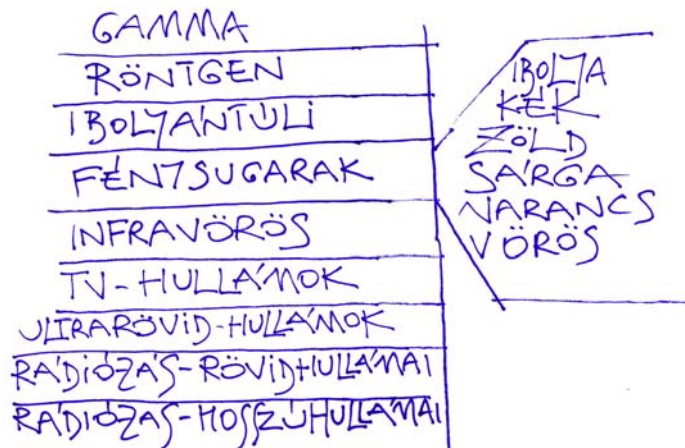 GAMMA
RÖNTGEN
IBOLYÁNTÚLI
FÉNYSUGARAK
INFRAVÖRÖS
TV-HULLÁMOK
ULTRARÖVID-HULLÁMOK
RÁDIÓZÁS-RÖVIDHULLÁMAI
RÁDIÓZÁS-HOSSZÚHULLÁMAI
IBOLYA
KÉK
ZÖLD
SÁRGA
NARANCS
VÖRÖS